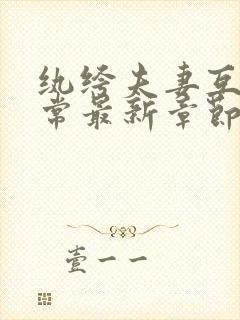 纨绔夫妻互
常最新章节
壹一一